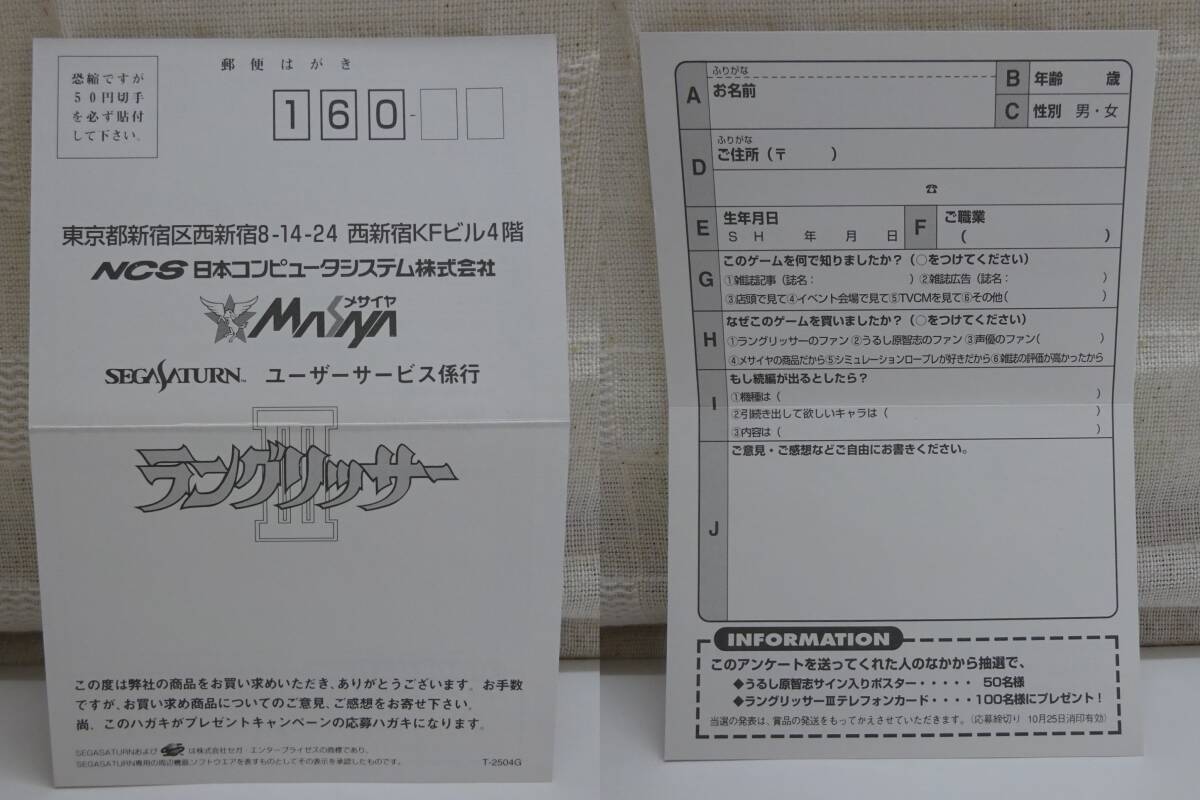 郵便はがき
恐縮ですが
50円切手
を必ず貼付
して下さい。
160-
東京都新宿区西新宿8-14-24 西新宿KFビル4階
NCS 日本コンピュータシステム株式会社
メサイヤ
MASAYA
SEGASATURN™ ユーザーサービス係行
ラングリッサーIII
この度は弊社の商品をお買い求めいただき、ありがとうございます。お手数
ですが、お買い求め商品についてのご意見、ご感想をお寄せ下さい。
尚、このハガキがプレゼントキャンペーンの応募ハガキになります。
SEGASATURNおよび は株式会社セガ・エンタープライゼスの商標であり、
SEGASATURN専用の周辺機器ソフトウエアを表すものとしてその表示を承認したものです。
T-2504G
A ふりがな
お名前
B 年齢 歳
C 性別 男・女
D ふりがな
ご住所(〒 )
☎
E 生年月日
S H 年 月 日
F ご職業
( )
G このゲームを何で知りましたか?(○をつけてください)
①雑誌記事(誌名: )②雑誌広告(誌名: )
③店頭で見て④イベント会場で見て⑤TVCMを見て⑥その他( )
H なぜこのゲームを買いましたか?(○をつけてください)
①ラングリッサーのファン②うるし原智志のファン③声優のファン( )
④メサイヤの商品だから⑤シミュレーションロープレが好きだから⑥雑誌の評価が高かったから
I もし続編が出るとしたら?
①機種は( )
②引続き出して欲しいキャラは( )
③内容は( )
J ご意見・ご感想などご自由にお書きください。
INFORMATION
このアンケートを送ってくれた人のなかから抽選で、
◆うるし原智志サイン入りポスター・・・・・ 50名様
◆ラングリッサーⅢテレフォンカード・・・・100名様にプレゼント!
当選の発表は、賞品の発送をもってかえさせていただきます。(応募締切り 10月25日消印有効)